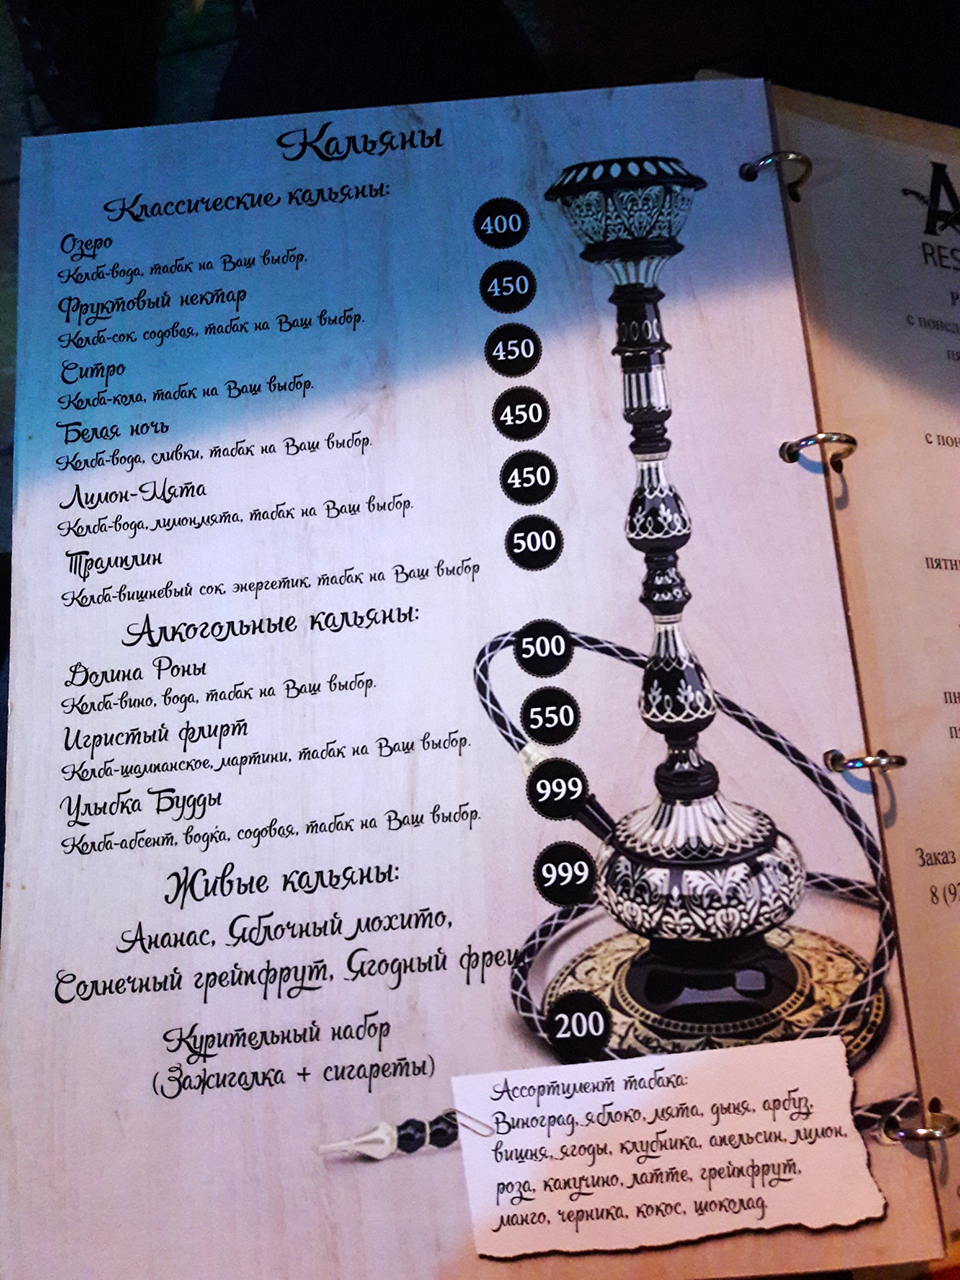 Кальяны
Классические кальяны:
Озеро 400
Колба-вода, табак на Ваш выбор.
Фруктовый нектар 450
Колба-сок, содовая, табак на Ваш выбор.
Ситро 450
Колба-кола, табак на Ваш выбор.
Белая ночь 450
Колба-вода, сливки, табак на Ваш выбор.
Лимон-Мята 450
Колба-вода, лимон,мята, табак на Ваш выбор.
Трамплин 500
Колба-вишневый сок, энергетик, табак на Ваш выбор
Алкогольные кальяны:
Долина Роны 500
Колба-вино, вода, табак на Ваш выбор.
Игристый флирт 550
Колба-шампанское, мартини, табак на Ваш выбор.
Улыбка Будды 999
Колба-абсент, водка, содовая, табак на Ваш выбор.
Живые кальяны: 999
Ананас, Яблочный мохито,
Солнечный грейпфрут, Ягодный
Курительный набор 200
(Зажигалка + сигареты)
Ассортимент табака:
Виноград, яблоко, мята, дыня, арбуз,
вишня, ягоды, клубника, апельсин, лимон,
роза, капучино, латте, грейпфрут,
манго, черника, кокос, шоколад.
с
с
Заказ
8